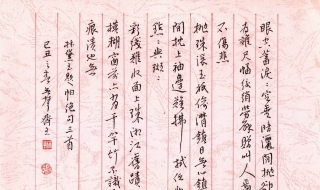 眼空蓄淚〻空垂暗灑閒拋卻
為誰尺幅鮫綃勞解贈叫人焉
不傷悲
拋珠滾玉祇偷潸鎮日無心鎮
閒枕上袖邊難拂拭任他
點〻與斑〻
彩線難收面上珠湘江舊蹟
模糊窗前亦有千竿竹不識
痕漬也無
林黛玉題帕絕句三首
己丑之春